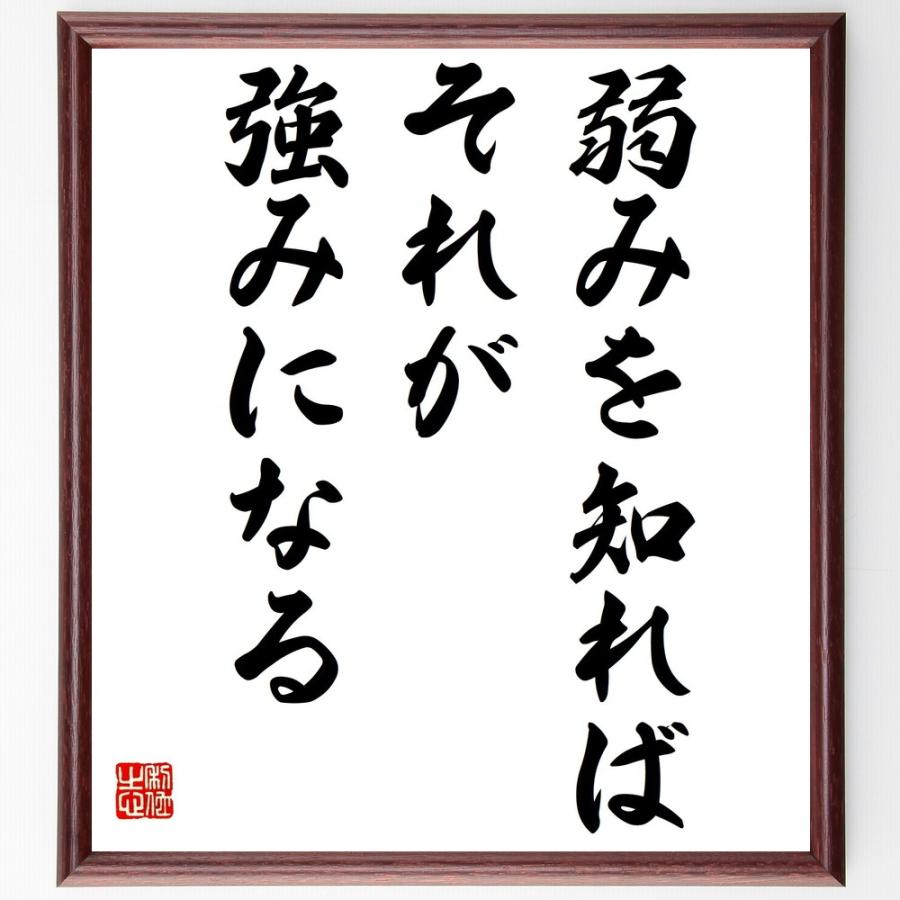 弱みを知れば
それが
強みになる